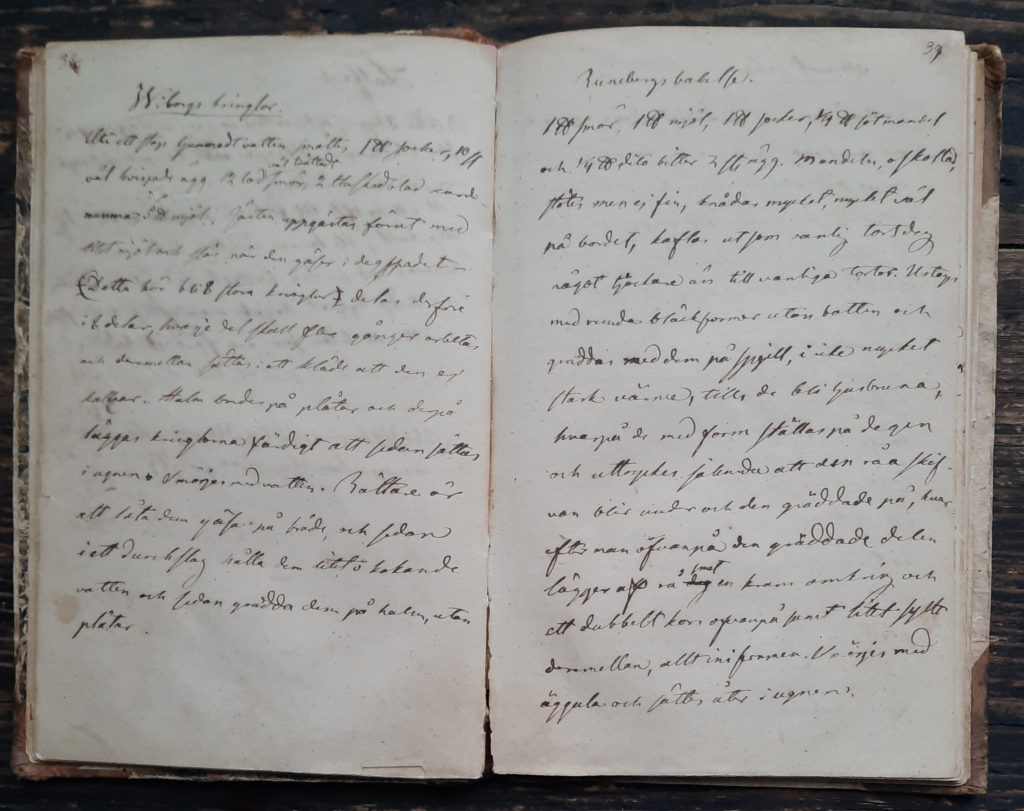 Wiborgs kringlor.
Uti ett stop ljummadt vatten, sättes 1 ℔ socker, 10 st
väl tvättade
väl hvispade ägg. 12 lod smör, 2 theskedblad carde
mumma, 5 ℔ mjöl. Jästen uppgästas förut med
litet mjöl och slås när den gäser i degspadet –
(Detta bör bli 8 stora kringlor) delas derföre
i 8 delar, hvarje del skall flere gånger arbetas
och deremellan sättas i ett kläde att den ej
kallnar. Halm bredes på plåtar och derpå
läggas kringlorna färdigt att sedan sättas
i ugnen o smörjes med vatten. Bättare är
att låta dem gäsa på bräde, och sedan
i ett durchslag hålla dem litet i kokande
vatten och sedan grädda dem på halm, utan
plåtar.
39
Runebergs bakelse.
1 ℔ smör, 1 ℔ mjöl, 1 ℔ socker, 1/4 ℔ sötmandel
och 1/4 ℔ dito bitter 2 st ägg. Mandeln, oskållad,
stötes men ej fin, knådas mycket, mycket väl
på bordet, kaflas ut som vanlig tortdeg
något tjockare än till vanliga tortor. Uttages
med runda bläckformar utan botten och
gräddas med dem på spjell, i icke mycket
stark värme, tills de bli ljusbruna,
hvarpå de med form ställas på degen
och uttryckes sålunda att den råa skif-
van blir under och den gräddade på, hvar
efter man öfvanpå den gräddade delen
smet
lägger af rå deg en krans omkring och
ett dubbelt kors ofvanpå samt litet sylt
deremellan, allt ini formen. Smörjes med
äggula och sättes åter i ugnen.